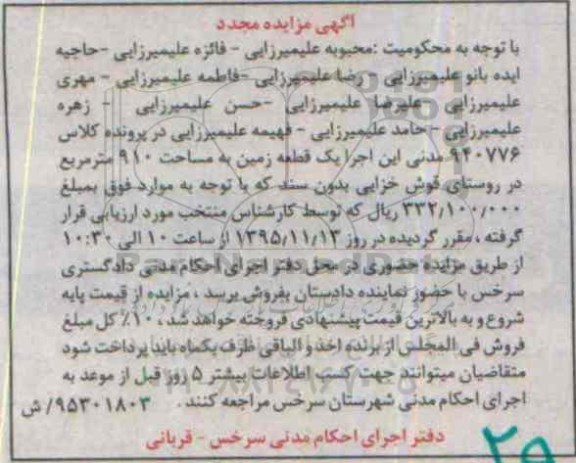 آگهی مزایده مجدد
با توجه به محکومیت :محبوبه علیمیرزایی - فائزه علیمیرزایی -حاجیه
ایده بانو علیمیرزایی - رضا علیمیرزایی -فاطمه علیمیرزایی - مهری
علیمیرزایی - علیرضا علیمیرزایی -حسن علیمیرزایی - زهره
علیمیرزایی -حامد علیمیرزایی - فهیمه علیمیرزایی در پرونده کلاس
۹۴۰۷۷۶ مدنی این اجرا یک قطعه زمین به مساحت ۹۱۰ مترمربع
در روستای قوش خزایی بدون سند که با توجه به موارد فوق بمبلغ
۳۳۲,۱۰۰,۰۰۰ ریال که توسط کارشناس منتخب مورد ارزیابی قرار
گرفته ، مقرر گردیده در روز ۱۳۹۵/۱۱/۱۳ از ساعت ۱۰ الی ۱۰:۳۰
از طریق مزایده حضوری در محل دفتر اجرای احکام مدنی دادگستری
سرخس با حضور نماینده دادستان بفروش برسد ، مزایده از قیمت پایه
شروع و به بالاترین قیمت پیشنهادی فروخته خواهد شد ، ۱۰٪ کل مبلغ
فروش فی المجلس از برنده اخذ و الباقی ظرف یکماه باید پرداخت شود
متقاضیان میتوانند جهت کسب اطلاعات بیشتر ۵ روز قبل از موعد به
اجرای احکام مدنی شهرستان سرخس مراجعه کنند . ۹۵۳۰۱۸۰۳/ ش
دفتر اجرای احکام مدنی سرخس - قربانی
۲۹